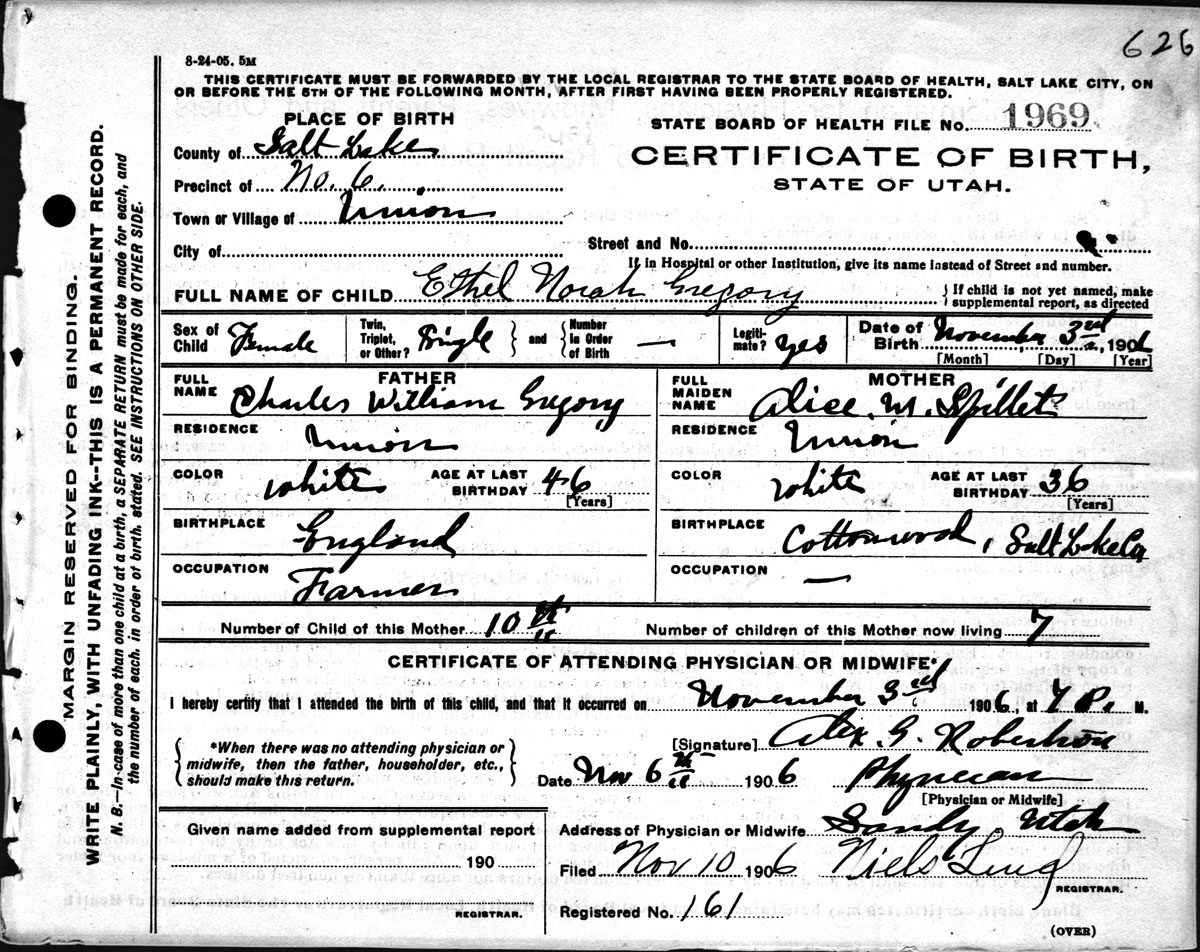 626
8-24-05. 5M
THIS CERTIFICATE MUST BE FORWARDED BY THE LOCAL REGISTRAR TO THE STATE BOARD OF HEALTH, SALT LAKE CITY, ON
OR BEFORE THE 5TH OF THE FOLLOWING MONTH, AFTER FIRST HAVING BEEN PROPERLY REGISTERED.
PLACE OF BIRTH
STATE BOARD OF HEALTH FILE No. 1969
County of Salt Lake
CERTIFICATE OF BIRTH,
Precinct of No. 6.
STATE OF UTAH.
Town or Village of Union
City of
Street and No.
If in Hospital or other Institution, give its name instead of Street and number.
FULL NAME OF CHILD Ethel Norah Gregory
{ If child is not yet named, make supplemental report, as directed
Sex of Child Female
Twin, Triplet, or Other? Single } and { Number in Order of Birth —
Legitimate? Yes
Date of Birth November 3rd, 1906
[Month] [Day] [Year]
FATHER
FULL NAME Charles William Gregory
MOTHER
FULL MAIDEN NAME Alice. M. Spillett
RESIDENCE Union
RESIDENCE Union
COLOR white AGE AT LAST BIRTHDAY 46 [Years]
COLOR white AGE AT LAST BIRTHDAY 36 [Years]
BIRTHPLACE England
BIRTHPLACE Cottonwood, Salt Lake Co
OCCUPATION Farmer
OCCUPATION —
Number of Child of this Mother 10th
Number of children of this Mother now living 7
CERTIFICATE OF ATTENDING PHYSICIAN OR MIDWIFE*
I hereby certify that I attended the birth of this child, and that it occurred on November 3rd 1906, at 7 P. M.
{ *When there was no attending physician or midwife, then the father, householder, etc., should make this return. }
[Signature] Alex. G. Robertson
Date Nov 6th 1906 Physician
[Physician or Midwife]
Given name added from supplemental report
190
REGISTRAR.
Address of Physician or Midwife Sandy. Utah
Filed Nov 10 1906 Niels Lind
REGISTRAR.
Registered No. 161
(OVER)
MARGIN RESERVED FOR BINDING.
WRITE PLAINLY, WITH UNFADING INK--THIS IS A PERMANENT RECORD.
N. B.—In case of more than one child at a birth, a SEPARATE RETURN must be made for each, and
the number of each, in order of birth, stated. SEE INSTRUCTIONS ON OTHER SIDE.